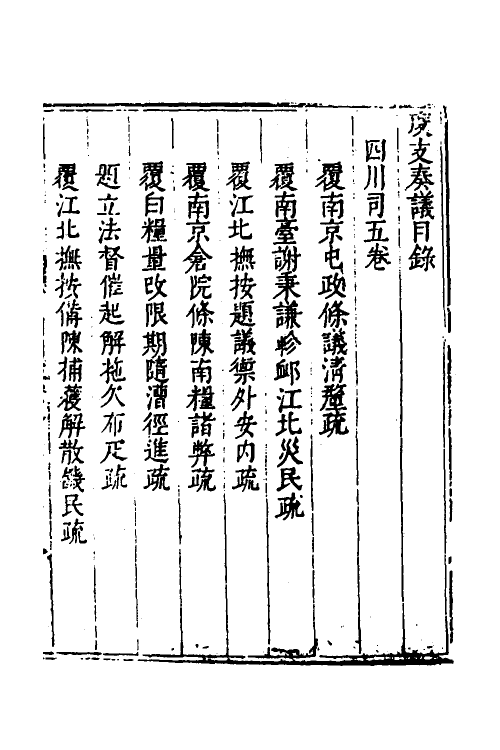 度支奏議目錄
四川司五卷
覆南京屯政條議清釐疏
覆南臺謝秉謙軫䘏江北災民疏
覆江北撫按題議禦外安内疏
覆南京倉院條陳南糧諸弊疏
覆白糧量改限期隨漕徑進疏
題立法督催起解拖欠布疋疏
覆江北撫按備陳捕蝗解散饑民疏